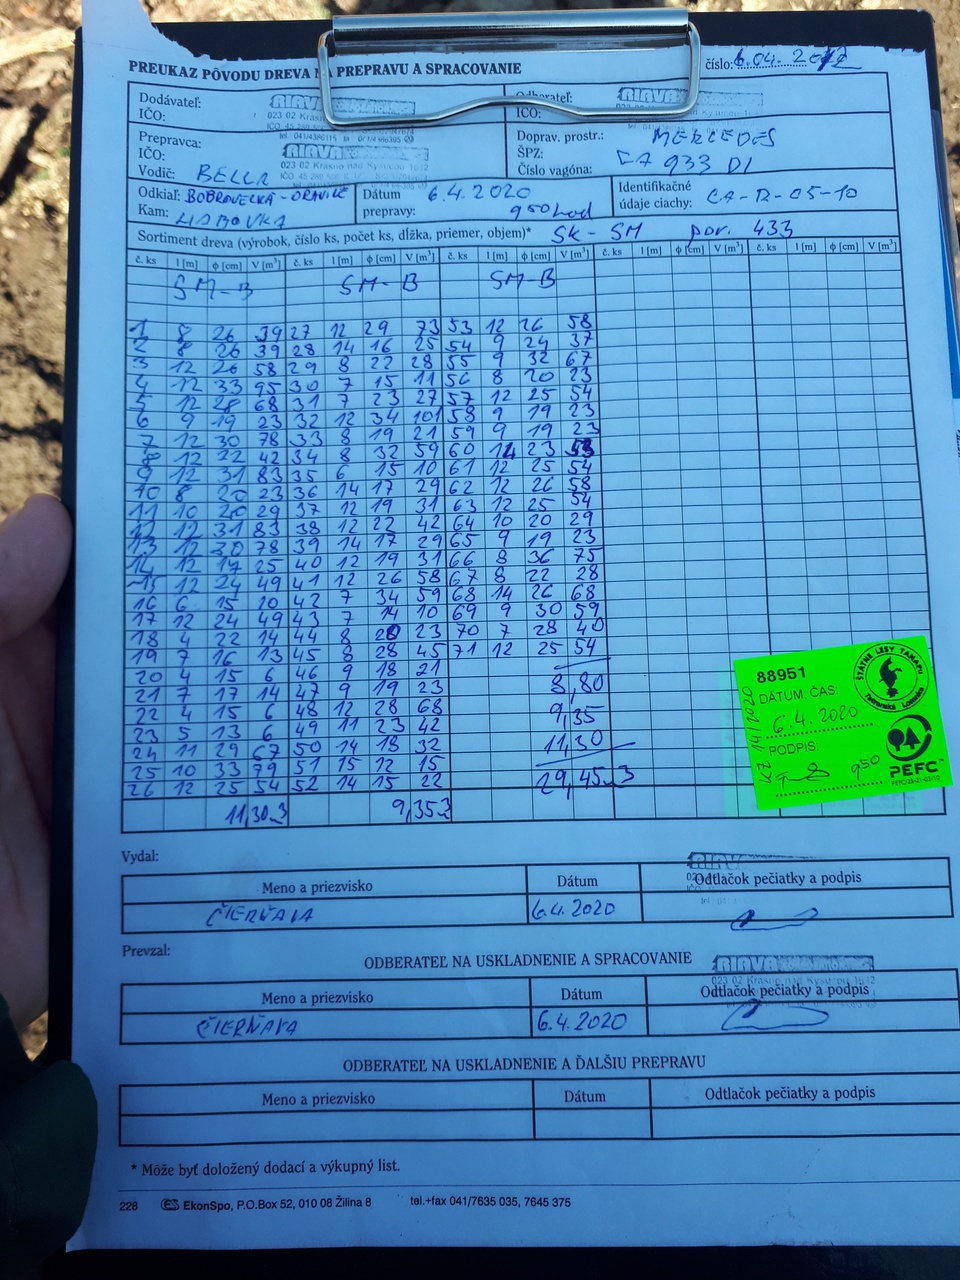 PREUKAZ PÔVODU DREVA NA PREPRAVU A SPRACOVANIE
číslo: 6.04.
Dodávateľ: RIAVA
IČO: 023 02 Krásno
Odberateľ: RIAVA
IČO:
Prepravca: RIAVA
IČO: 023 02 Krásno nad Kysucou 1642
Vodič: BELLA
Doprav. prostr.: MERCEDES
ŠPZ: CA 933 DI
Číslo vagóna:
Odkiaľ: BOBROVECKÁ - ORAVICE
Kam:
Dátum prepravy: 6.4.2020 9 50 hod
Identifikačné údaje ciachy: CA-R-05-10
Sortiment dreva (výrobok, číslo ks, počet ks, dĺžka, priemer, objem)* SK - SM por. 433
č. ks l [m] ϕ [cm] V [m³] č. ks l [m] ϕ [cm] V [m³] č. ks l [m] ϕ [cm] V [m³] č. ks l [m] ϕ [cm] V [m³] č. ks l [m] ϕ [cm] V [m³]
SM-B SM-B SM-B
1 8 26 39 27 12 29 73 53 12 26 58
2 8 26 39 28 14 16 25 54 9 24 37
3 12 26 58 29 8 22 28 55 9 32 67
4 12 33 95 30 7 15 11 56 8 20 23
5 12 28 68 31 7 23 27 57 12 25 54
6 9 19 23 32 12 34 101 58 9 19 23
7 12 30 78 33 8 19 21 59 9 19 23
8 12 22 42 34 8 32 59 60 14 23 53
9 12 31 83 35 6 15 10 61 12 25 54
10 8 20 23 36 14 17 29 62 12 26 58
11 10 20 29 37 12 19 31 63 12 25 54
12 12 31 83 38 12 22 42 64 10 20 29
13 12 30 78 39 14 17 29 65 9 19 23
14 12 17 25 40 12 19 31 66 8 36 75
15 12 24 49 41 12 26 58 67 8 22 28
16 6 15 10 42 7 34 59 68 14 26 68
17 12 24 49 43 7 14 10 69 9 30 59
18 4 22 14 44 8 20 23 70 7 28 40
19 7 16 13 45 8 28 45 71 12 25 54
20 4 15 6 46 9 18 21
21 7 17 14 47 9 19 23 8,80
22 4 15 6 48 12 28 68 9,35
23 5 13 6 49 11 23 42
24 11 29 67 50 14 18 32 11,30
25 10 33 79 51 15 12 15
26 12 25 54 52 14 15 22 29,45
11,30 9,35
88951
DÁTUM, ČAS:
6.4.2020
PODPIS:
9 50
KZ 14/2020
ŠTÁTNE LESY TANAPU
Tatranská Lomnica
PEFC™
Vydal:
Meno a priezvisko Dátum Odtlačok pečiatky a podpis
ČIERŇAVA 6.4.2020
Prevzal:
ODBERATEĽ NA USKLADNENIE A SPRACOVANIE
RIAVA
023 02 Krásno nad Kysucou 1642
Meno a priezvisko Dátum Odtlačok pečiatky a podpis
ČIERŇAVA 6.4.2020
ODBERATEĽ NA USKLADNENIE A ĎALŠIU PREPRAVU
Meno a priezvisko Dátum Odtlačok pečiatky a podpis
* Môže byť doložený dodací a výkupný list.
228 EkonSpo, P.O.Box 52, 010 08 Žilina 8 tel.+fax 041/7635 035, 7645 375